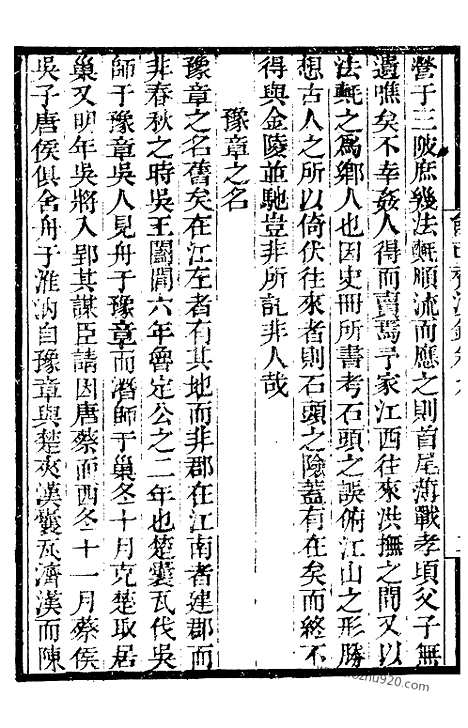 營于三陂庶幾法𣰈順流而應之則首尾薄戰孝頃父子無
遺噍矣不幸姦人得而賣焉予家江西往來洪撫之間又以
法𣰈之爲鄉人也因史冊所書考石頭之誤俯江山之形勝
想古人之所以倚伏往來者則石頭之險蓋有在矣而終不
得與金陵並馳豈非所託非人哉
豫章之名
豫章之名舊矣在江左者有其地而非郡在江南者建郡而
非春秋之時吳王闔閭六年魯定公之二年也楚囊瓦伐吳
師于豫章吳人見舟于豫章而潛師于巢冬十月克楚取居
巢又明年吳將入郢其謀臣請因唐蔡而西冬十一月蔡侯
吳子唐侯俱舍舟于淮汭自豫章與楚夾漢囊瓦濟漢而陳